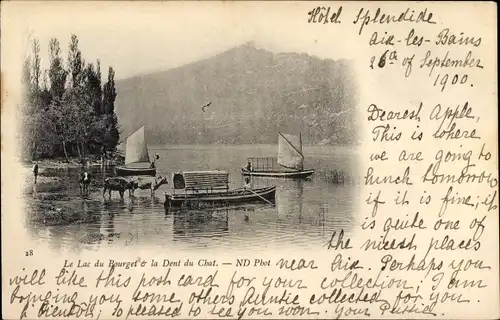 Hôtel Splendide
Aix-les-Bains
26th of September
1900.
Dearest Apple,
This is where
we are going to
lunch tomorrow
if it is fine; it
is quite one of
the nicest places
28
Le Lac du Bourget & la Dent du Chat. — ND Phot
near Aix. Perhaps you
will like this post card for your collection; I am
bringing you some others Auntie collected for you.
A bientôt; so pleased to see you won. Your Pussie.